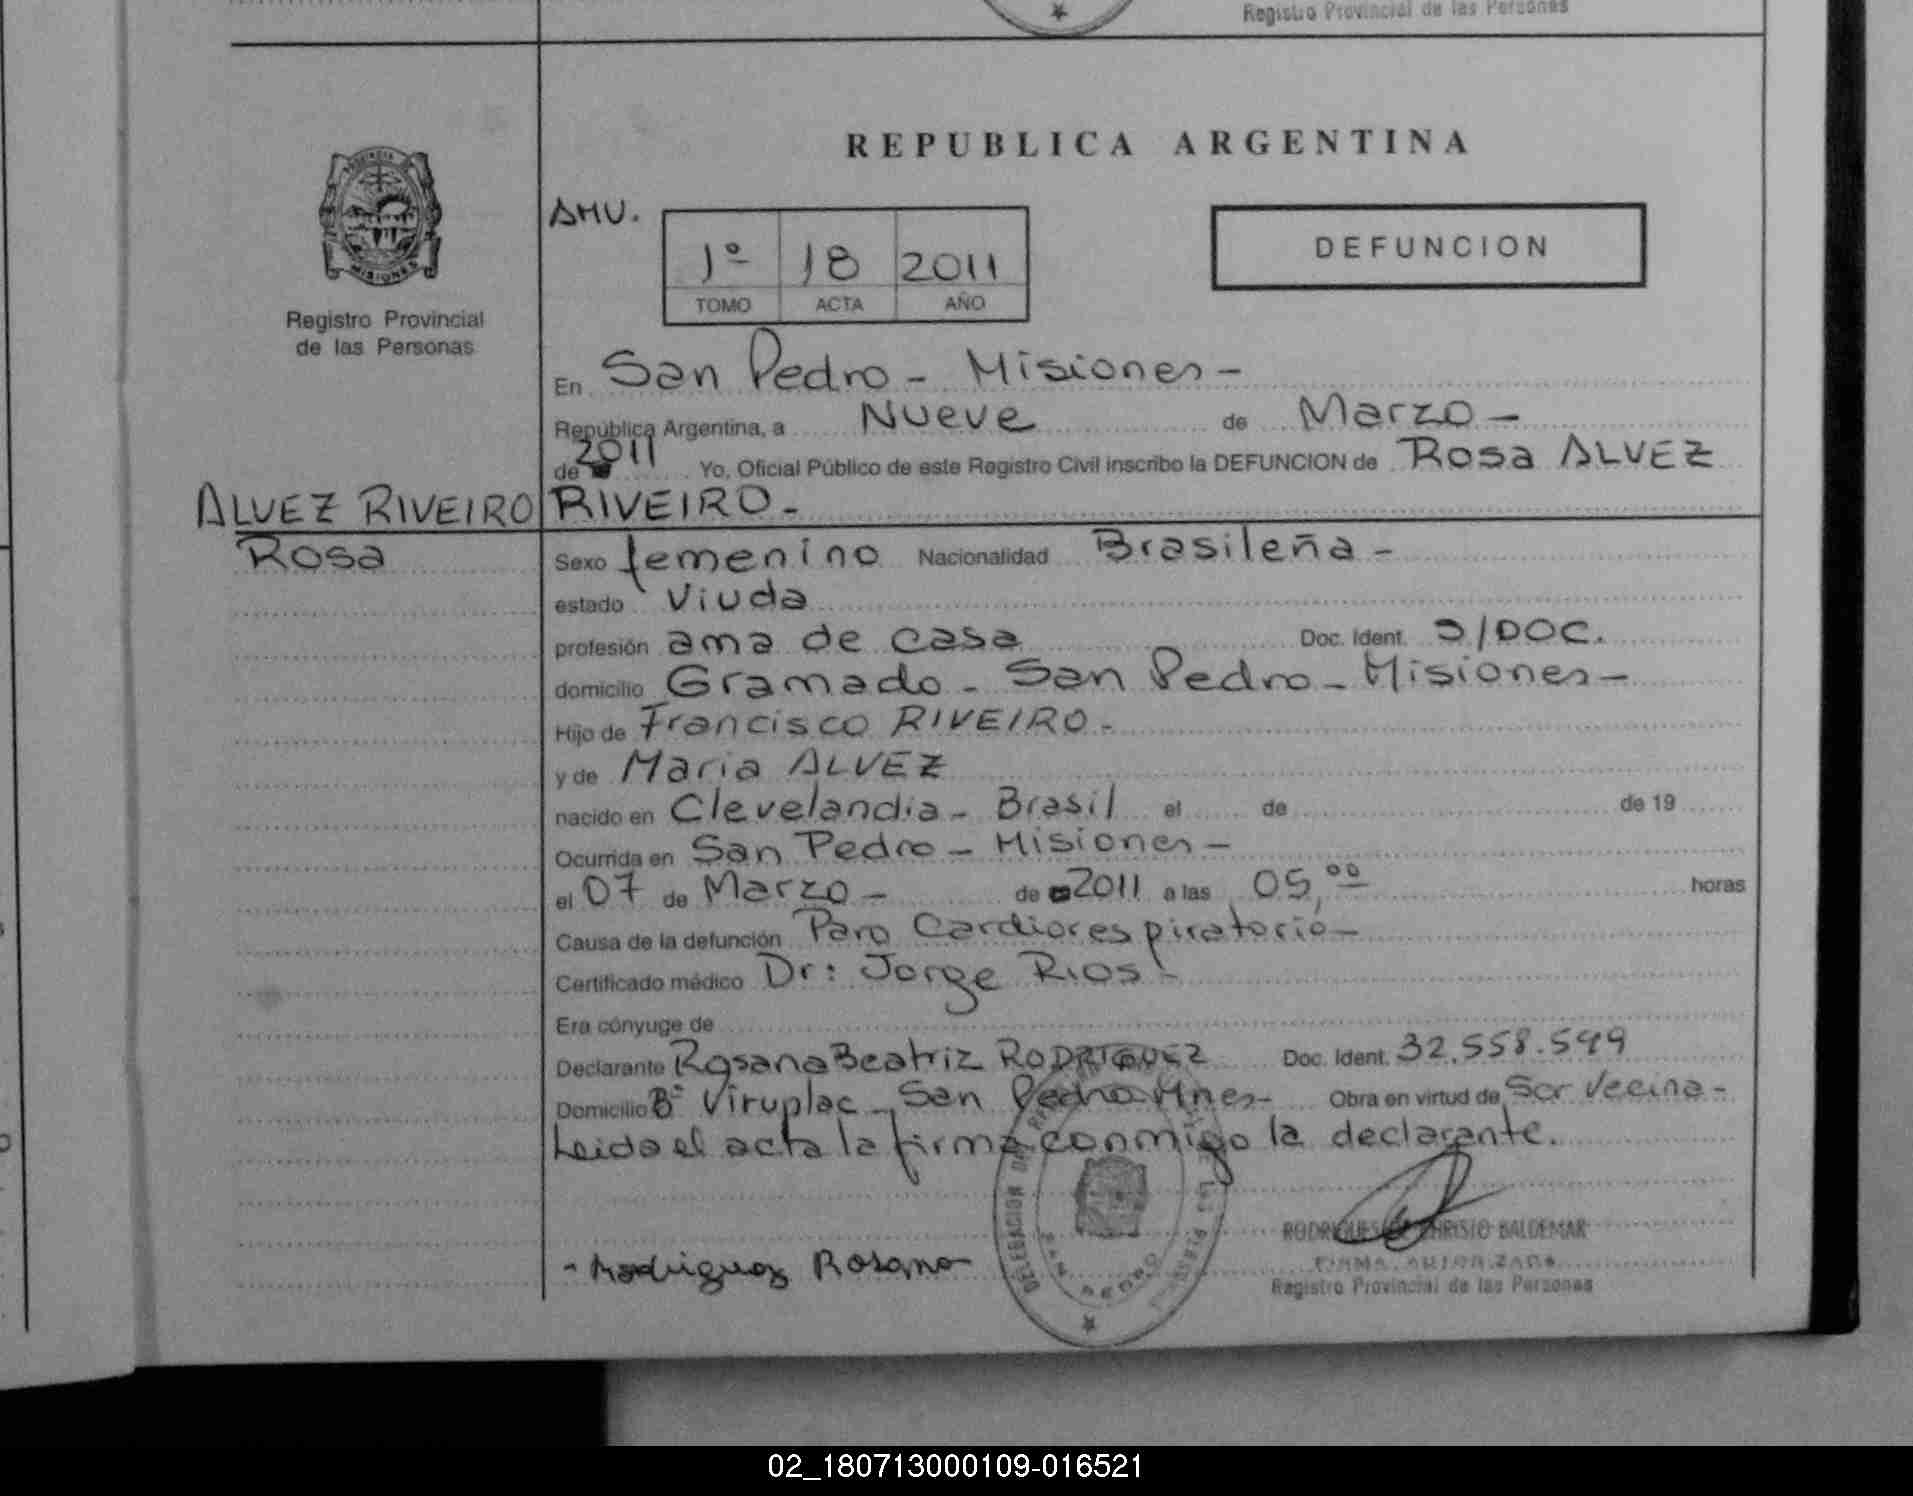 Registro Provincial de las Personas
REPUBLICA ARGENTINA
PROVINCIA
MISIONES
Registro Provincial
de las Personas
AMU.
1º 18 2011
TOMO ACTA AÑO
DEFUNCION
En San Pedro - Misiones -
República Argentina, a Nueve de Marzo -
de 2011 Yo, Oficial Público de este Registro Civil inscribo la DEFUNCION de Rosa ALVEZ
RIVEIRO -
ALVEZ RIVEIRO
Rosa
Sexo femenino Nacionalidad Brasileña -
estado Viuda
profesión ama de casa Doc. Ident. S/DOC.
domicilio Gramado - San Pedro - Misiones -
Hijo de Francisco RIVEIRO -
y de Maria ALVEZ
nacido en Clevelandia - Brasil el de de 19
Ocurrida en San Pedro - Misiones -
el 07 de Marzo - de 2011 a las 05,00 horas
Causa de la defunción Paro Cardiorespiratorio -
Certificado médico Dr: Jorge Rios -
Era cónyuge de
Declarante Rosana Beatriz RODRIGUEZ Doc. Ident. 32.558.549
Domicilio Bº Viruplac - San Pedro Mnes - Obra en virtud de Ser Vecina -
Leida el acta la firma conmigo la declarante.
- Rodriguez Rosana
DELEGACION
SAN PEDRO
BALDEMAR
FIRMA AUTORIZADA
Registro Provincial de las Personas
02_180713000109-016521